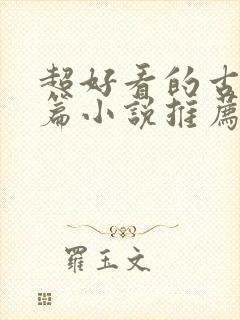 超好看的古
篇小說推薦
羅玉文